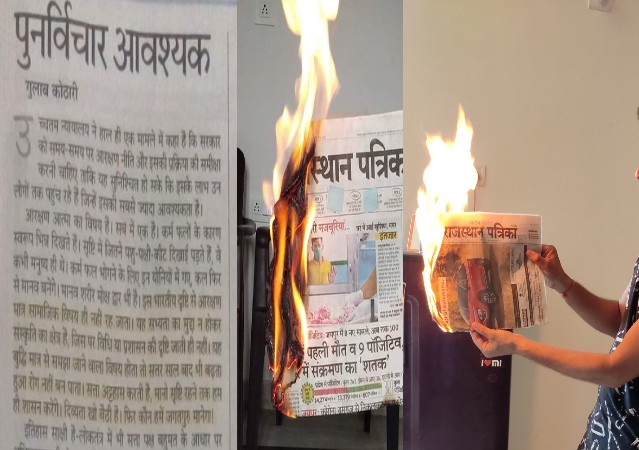 पुनर्विचार आवश्यक
गुलाब कोठारी
उच्चतम न्यायालय ने हाल ही एक मामले में कहा है कि सरकार
को समय-समय पर आरक्षण नीति और इसकी प्रक्रिया की समीक्षा
करनी चाहिए ताकि यह सुनिश्चित हो सके कि इसके लाभ उन
लोगों तक पहुंच रहे हैं जिन्हें इसकी सबसे ज्यादा आवश्यकता है।
आरक्षण आत्मा का विषय है। सब में एक है। कर्म फलों के कारण
स्वरूप भिन्न दिखते हैं। सृष्टि में जो पशु-पक्षी-कीट दिखाई पड़ते हैं, वे
कभी मनुष्य ही थे। कर्म फल भोगने के लिए इन योनियों में गए, कल फिर
से मानव बनेंगे। मानव शरीर मोक्ष द्वार भी है। इस भारतीय दृष्टि से आरक्षण
मात्र सामाजिक विषय ही नहीं रह जाता। यह सभ्यता का मुद्दा न होकर
संस्कृति का होता है, जिस पर विधि या शासन की दृष्टि जाती ही नहीं। यह
बुद्धि मात्र से माना जाने वाला विषय होता तो सत्तर साल बाद भी बढ़ता
हुआ रोग नहीं बन पाता। सत्ता अट्टहास करती है, मानो दृष्टि रहते तक हम
ही शासन करेंगे। दिव्यता खो बैठी है। फिर कौन हमें जगतगुरु मानेगा।
इतिहास साक्षी है-लोकतंत्र में भी सत्ता पक्ष बहुमत के आधार पर
स्थान पत्रिका
इंतजार
पहली मौत व 9 पॉजिटिव,
में संक्रमण का 'शतक'
राजस्थान पत्रिका
I ♥ mi